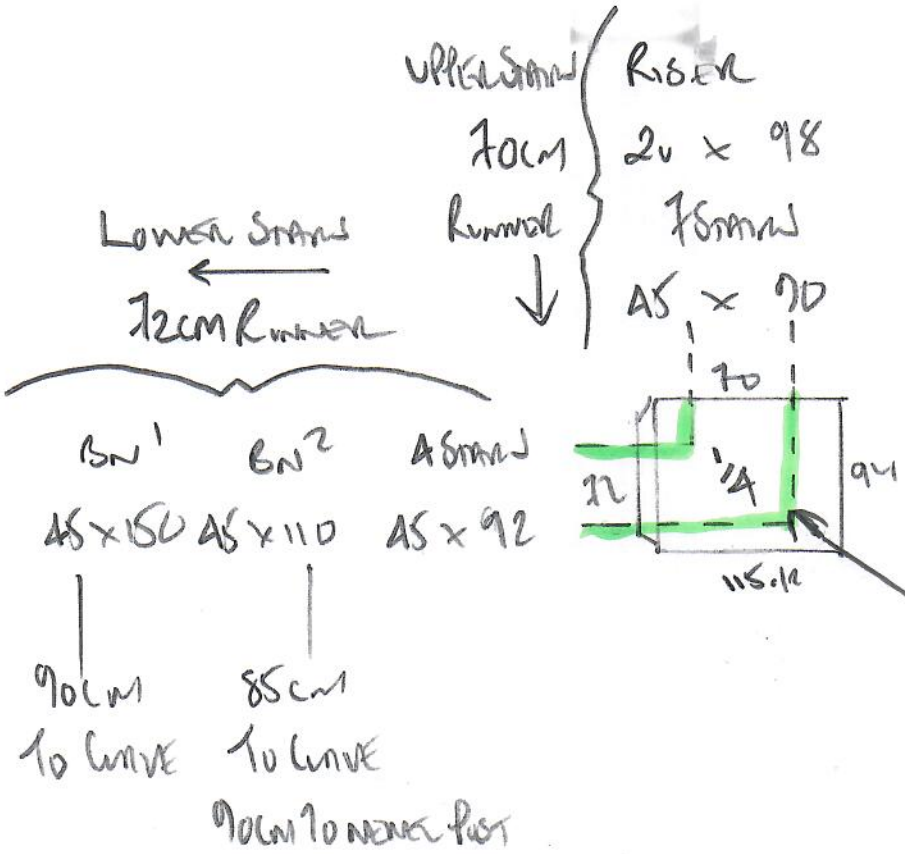 UPPER STAIRS
70CM
RUNNER
RISER
20 x 98
7 STAIRS
45 x 90
LOWER STAIRS
72CM RUNNER
BN1
45 x 150
90CM
TO CURVE
BN2
45 x 110
85CM
TO CURVE
90CM TO NEWEL POST
4 STAIRS
45 x 92
70
72
1/4
94